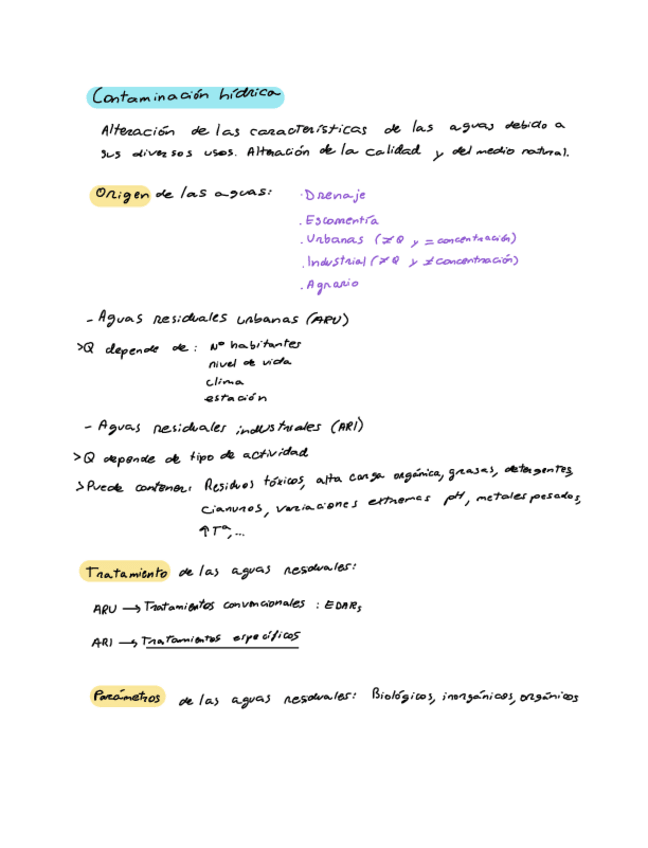 Contaminación hídrica
Alteración de las características de las aguas debido a
sus diversos usos. Alteración de la calidad y del medio natural.
Origen de las aguas:
· Drenaje
· Escomentía
· Urbanas (≠ Q y = concentración)
· Industrial (≠ Q y ≠ concentración)
· Agrario
- Aguas residuales urbanas (ARU)
>Q depende de: Nº habitantes
nivel de vida
clima
estación
- Aguas residuales industriales (ARI)
>Q depende de tipo de actividad
>Puede contener: Residuos tóxicos, alta carga orgánica, grasas, detergentes,
cianuros, variaciones extremas pH, metales pesados,
↑Tª,...
Tratamiento de las aguas residuales:
ARU → Tratamientos convencionales : EDARs
ARI → Tratamientos específicos
Parámetros de las aguas residuales: Biológicos, inorgánicos, orgánicos